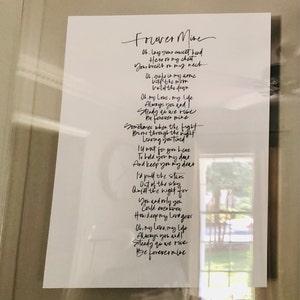 Forever Mine
Oh, lay your sweet head
Here on my chest
Your breath on my neck
Oh, safe in my arms
Until the moon
Until the days
Oh my love, my life
Always you and I
Steady as we rise
Be forever mine
Sometimes when the light
Burns through the night
I'd wait for you here
To hold you my dear
And keep you my dear
I'd pull the stars
Out of the sky
Until the night for
You and only you
Could ever know
How deep my love goes
Oh, my love, my life
Always you and I
Steady as we rise
Be forever mine